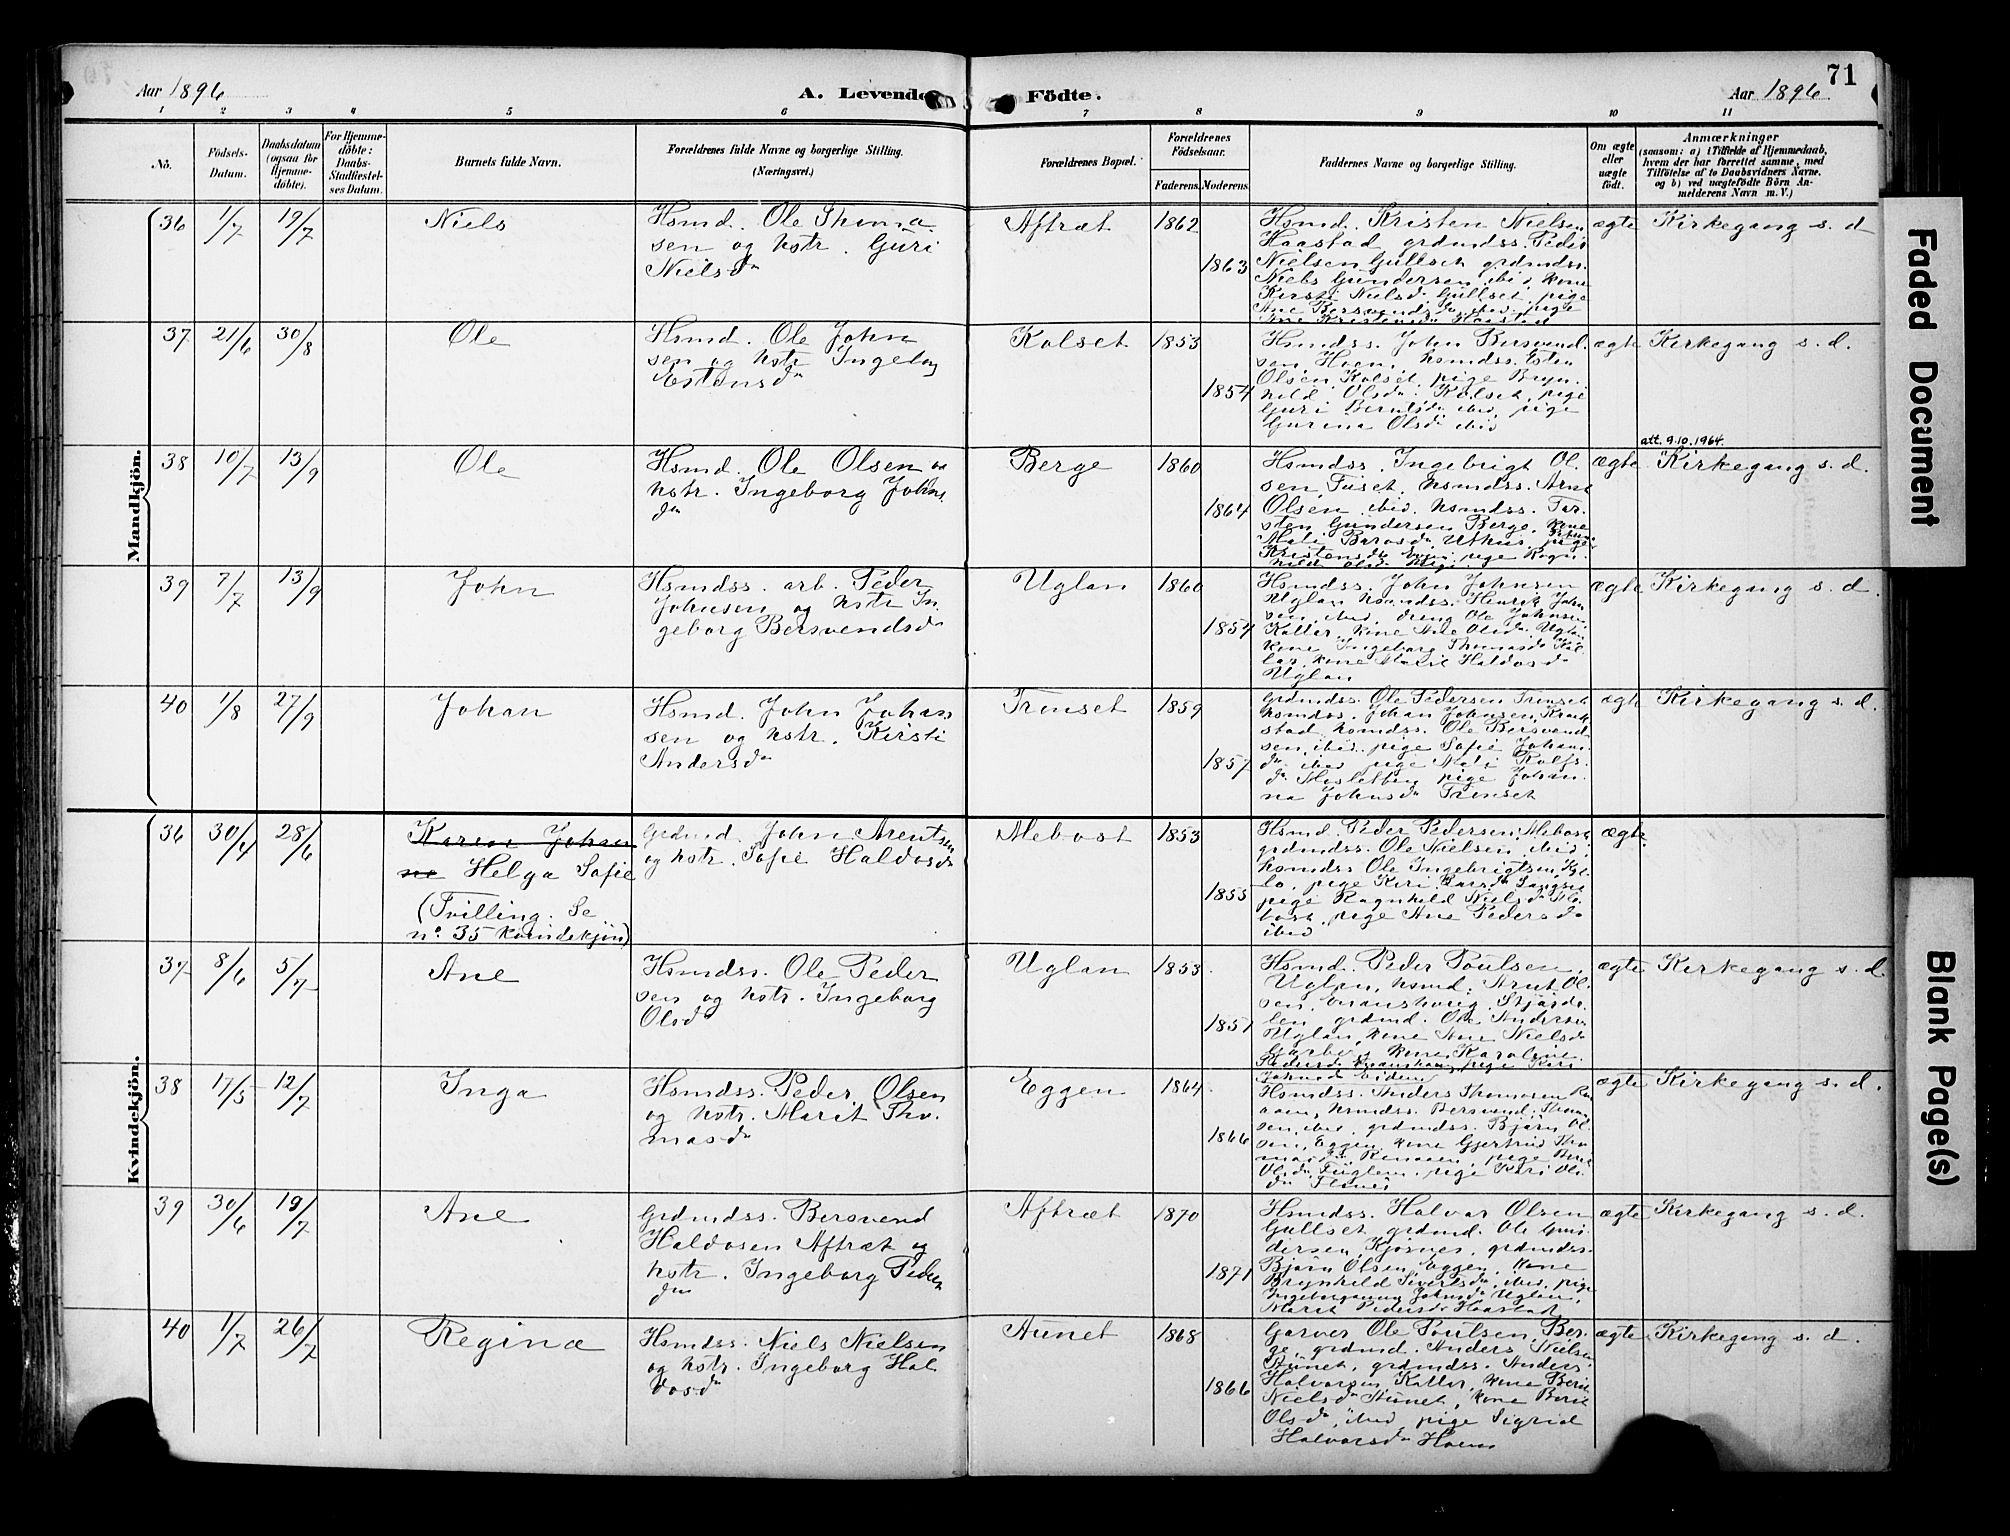 71
Aar 1896
A. Levende Födte.
Aar 1896
1 2 3 4 5 6 7 8 9 10 11
No.
Födsels-Datum.
Daabsdatum (ogsaa for Hjemme-døbte).
For Hjemme-døbte: Daabs-Stadfæstel-ses Datum.
Barnets fulde Navn.
Forældrenes fulde Navne og borgerlige Stilling. (Næringsvei.)
Forældrenes Bopæl.
Forældrenes Födselsaar.
Faderens.
Moderens.
Faddernes Navne og borgerlige Stilling.
Om ægte eller uægte født.
Anmærkninger
(saasom: a) i Tilfælde af Hjemmedaab, hvem der har forrettet samme, med Tilføielse af to Daabsvidners Navne, og b) ved uægtefødte Börn An-melderens Navn m. V.)
Mandkjön.
36 1/7 19/7 Niels
Hsmd. Ole Thoma
sen og hstr. Guri
Nielsda
Aftræt 1862 1863
Hsmd. Kristen Nielsen
Haastad grdmdss. Peder
Nielsen Gullset grdmdss.
Niels Gundersen ibid, kone
Kersti Nielsda Gullset, pige
Ane Bersvendsda ibid, pige
Kristensda Haastad
ægte Kirkegang s. d
37 21/6 30/8 Ole
Hsmd. Ole John
sen og hstr. Ingeborg
Estensda
Kolset 1853 1854
Hsmdss. John Bersvend.
sen, Hoen, hsmdss. Esten
Olsen Kolset, pige Bryn.
hild Olsda Kolset, pige
Guri Berntsda ibid, pige
Gurina Olsda ibid
ægte Kirkegang s. d.
att. 9.10.1964.
38 10/7 13/9 Ole
Hsmd. Ole Olsen og
hstr. Ingeborg Johns
da
Berge 1860 1864
Hsmdss. Ingebrigt Ol.
sen Fuset, hsmdss. Arnt
Olsen ibid, hsmdss. Tor.
sten Gundersen Berge, kone
Mali Uthus, pige
Kristensda pige Ragn
hild Olsda
ægte Kirkegang s. d.
39 7/7 13/9 John
Hsmdss. arb. Peder
Johnsen og hstr In.
geborg Bersvendsda
Uglan 1860 1854
Hsmdss. John Johnsen
Uglan hsmdss. Henrik John
sen, ibid, dreng Ole Johnsen
Kaller, kone Ane Olsda Uglan,
kone Ingeborg Thomasda Kal
ler, kone Marit Haldosda
Uglan
ægte Kirkegang s. d.
40 1/8 27/9 Johan
Hsmd. John Johan
sen og hstr. Kirsti
Andersda
Tronset 1859 1857
Grdmdss. Ole Pedersen Tronset
hsmdss. Johan Johnsen,
stad hsmdss. Ole Bersvend
sen, ibid, pige Sofie Johans
da ibid pige Mali Rolfs.
da Mosletten pige Johan.
na Johnsda Tronset
ægte Kirkegang s. d.
Kvindekjön.
36 30/4 28/6
Karen Johan
ne Helga Sofie
(Tvilling. Se
no. 35 kvindekjøn)
Grdmd. John Arentsen
og hstr. Sofie Haldosda
Mebost 1853 1855
Hsmd. Peder Pedersen, Mebost
grdmdss. Ole Nielsen ibid,
hsmdss Ole Ingebrigtsen,
pige Kari Larsda
pige Ragnhild Nielsda Me
bost, pige Ane Pedersda
ibid
ægte
37 8/6 5/7 Ane
Hsmdss. Ole Peder
sen og hstr. Ingeborg
Olsda
Uglan 1853 1851
Hsmd. Peder Poulsen
Uglan, hsmd. Arnt Ol
sen, Stjørda
len grdmd. Ole Andersen
Uglan, kone Ane Nielsda
kone Karoline
Pedersda pige Kari
Johnsda Eidem
ægte Kirkegang s. d.
38 17/5 12/7 Inga
Hsmdss. Peder Olsen
og hstr. Marit Tho.
masda
Eggen 1864 1866
Hsmdss. Anders Thomasen
hsmdss. Bersvend Thom
sen ibid, grdmdss. Bjørn Ol
sen, Eggen kone Gjertrud Tho
masda pige Berit
Olsda Fuglem, pige Kari Ols
da
ægte Kirkegang s. d.
39 30/6 19/7 Ane
Grdmdss. Bersvend
Haldosen Aftræt og
hstr. Ingeborg Peders
da
Aftræt 1870 1871
Hsmdss. Halvar Olsen
Gullset, grdmd. Ole Gun
dersen, Kjøsnes, grdmdss.
Bjørn Olsen, Eggen, kone
Brynhild Sivertsda, ibid, pige
Ingeborganna Johnsda Uglan,
Marit Pedersda Haastad
ægte Kirkegang s. d.
40 1/7 26/7 Reginæ
Hsmdss. Niels Nielsen
og hstr. Ingeborg Hal
dosda
Aunet 1868 1866
Garver Ole Poulsen, Ber.
ge, grdmd. Anders Nielsen
Aunet, grdmdss. Anders
Halvorsen Kaller, kone Berit
Nielsda Aunet, kone Berit
Olsda, ibid, pige Sigrid
Halvorsda Hoem
ægte Kirkegang s. d.
Faded Document
Blank Page(s)